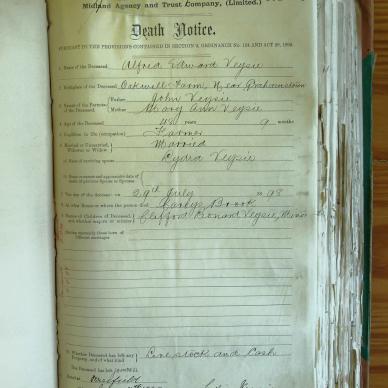 Midland Agency and Trust Company, (Limited.)
Death Notice.
PURSUANT TO THE PROVISIONS CONTAINED IN SECTION 9, ORDINANCE No. 104 AND ACT 20, 1895.
1. Name of the Deceased Alfred Edward Veysie
2. Birthplace of the Deceased Oakwell Farm, Near Grahamstown
3. Names of the Parents of the Deceased Father John Veysie
Mother Mary Ann Veysie
4. Age of the Deceased 48 years 9 months
5. Condition in life (occupation) Farmer
6. Married or Unmarried, Widower or Widow Married
Name of surviving spouse Lydia Veysie
7. The day of the decease 29th July 98
8. At what House or where the person died Brook
9. Names of Children of Deceased, and whether majors or minors Clifford Leonard Veysie, Minor
Stating separately those born of different marriages
Whether Deceased has left any Property, and of what kind Live stock and Cash
The Deceased has left
Dated at